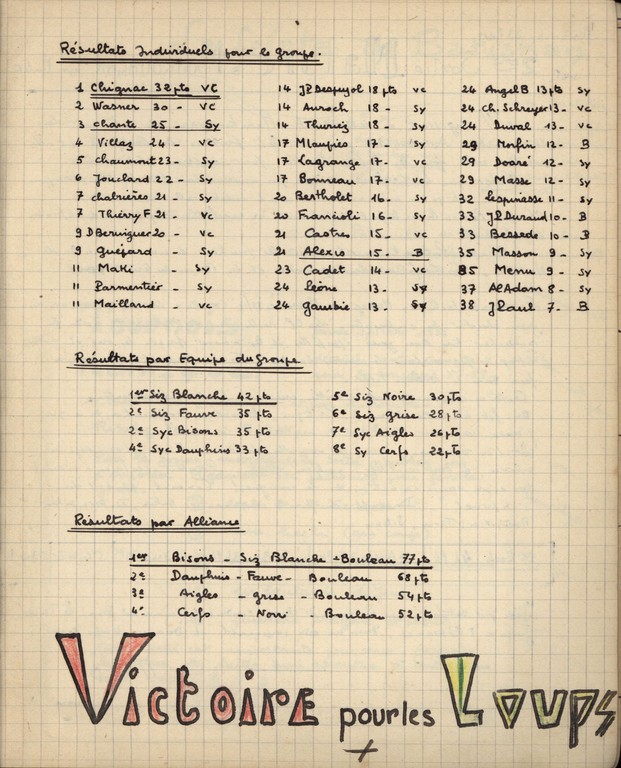 Résultats Individuels pour le groupe.
1 Chignac 32 pts VC
2 Wasner 30 - VC
3 chante 25 - Sy
4 Villaz 24 - VC
5 chaumont 23 - Sy
6 Jouclard 22 - Sy
7 chabrières 21 - Sy
7 Thiéry F 21 - VC
9 D Beringuer 20 - VC
9 Guéjard - Sy
11 Maki - Sy
11 Parmentier - Sy
11 Mailland - VC
14 JP Despujol 18 pts VC
14 Auroch 18 - Sy
14 Thuriez 18 - Sy
17 Mlaupies 17 - Sy
17 Lagrange 17 - VC
17 Bonneau 17 - VC
20 Bertholet 16 - Sy
20 Francioli 16 - Sy
21 Castres 15 - VC
21 Alexis 15 - B
23 Cadet 14 - VC
24 Léone 13 - Sy
24 Gambie 13 - Sy
24 Angel B 13 pts Sy
24 Ch. Schreyer 13 - VC
24 Duval 13 - VC
29 Morfin 12 - B
29 Doaré 12 - Sy
29 Masse 12 - Sy
32 Lespinasse 11 - Sy
33 JP Durand 10 - B
33 Bessede 10 - B
35 Masson 9 - Sy
35 Menu 9 - Sy
37 Al Adam 8 - Sy
38 J Paul 7 - B
Résultats par Equipe du Groupe
1er Siz Blanche 42 pts
2e Siz Fauve 35 pts
2e Syc Bisons 35 pts
4e Syc Dauphins 33 pts
5e Siz Noire 30 pts
6e Siz grise 28 pts
7e Syc Aigles 26 pts
8e Sy Cerfs 22 pts
Résultats par Alliance
1er Bisons - Siz Blanche - Bouleau 77 pts
2e Dauphins - Fauve - Bouleau 68 pts
3e Aigles - grise - Bouleau 54 pts
4e Cerfs - Noiri - Bouleau 52 pts
Victoire pour les Loups